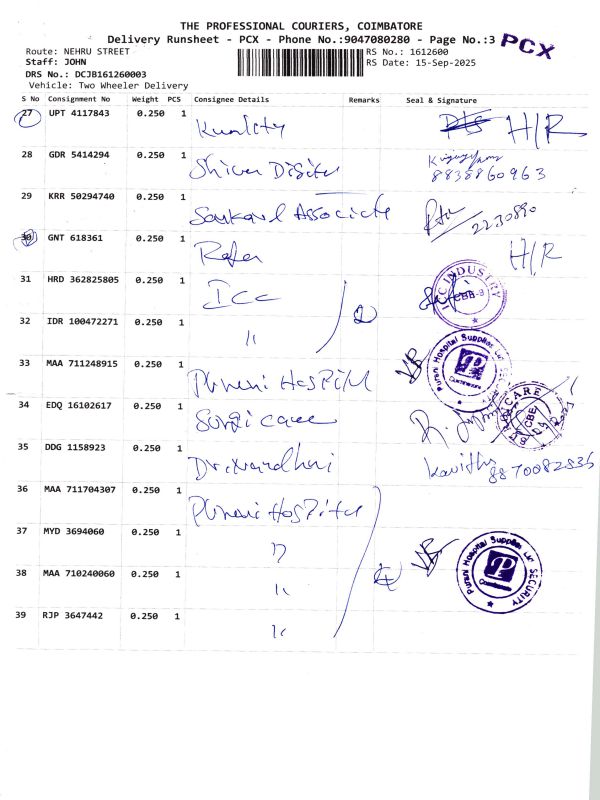 THE PROFESSIONAL COURIERS, COIMBATORE
Delivery Runsheet - PCX - Phone No.:9047080280 - Page No.:3
PCX
Route: NEHRU STREET
RS No.: 1612600
Staff: JOHN
RS Date: 15-Sep-2025
DRS No.: DCJB161260003
Vehicle: Two Wheeler Delivery
S No Consignment No Weight PCS Consignee Details Remarks Seal & Signature
27 UPT 4117843 0.250 1 H/R
28 GDR 5414294 0.250 1 8838860963
29 KRR 50294740 0.250 1 Associate 2230890
30 GNT 618361 0.250 1 H/R
31 HRD 362825805 0.250 1 ICC
ICC INDUSTRY
CBB-9
32 IDR 100472271 0.250 1 "
33 MAA 711248915 0.250 1 Hospital
Purani Hospital Supplies
P
34 EDQ 16102617 0.250 1 Surgi care
CARE
CBE
35 DDG 1158923 0.250 1 Kavitha
36 MAA 711704307 0.250 1 Hospital
37 MYD 3694060 0.250 1 "
38 MAA 710240060 0.250 1 "
Purani Hospital Supplies
SECURITY
P
39 RJP 3647442 0.250 1 "